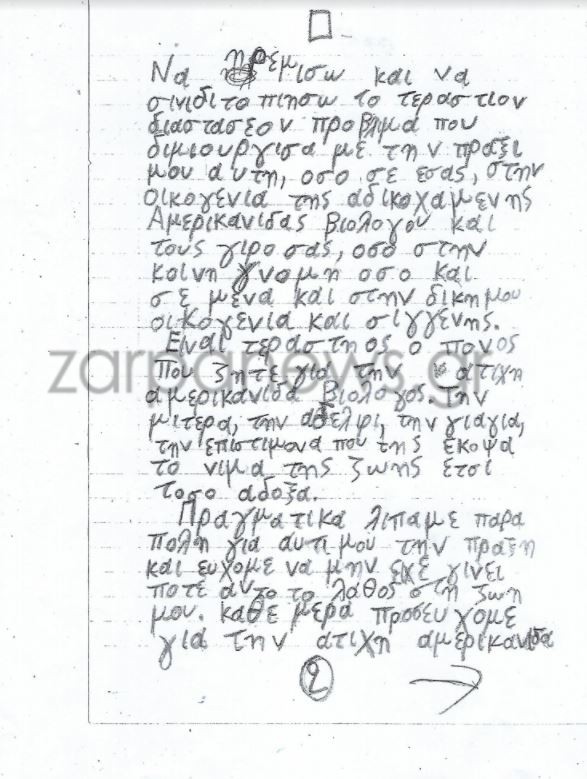 Να ηρεμισω και να
σινιδιτοπιησω το τεραστιον
διαστασεον προβλιμα που
διμιουργισα με την πραξι
μου αυτη, οσο σε εσας, στην
οικογενια της αδικοχαμενης
Αμερικανιδας βιολογου και
τους γιρο σας, οσο στην
κοινη γνομη οσο και
σε μενα και στην δικη μου
οικογενια και σιγγενης.
Ειναι τεραστηος ο πονος
που ζητε για την ατιχη
αμερικανιδα βιολογος. Την
μιτερα, την αδελφι, την γιαγια,
την επιστιμονα που της εκοψα
το νιμα της ζωης ετσι
τοσο αδοξα.
Πραγματικα λιπαμε παρα
πολη για αυτι μου την πραξη
και ευχομε να μην εχε γινει
ποτε αυτο το λαθος στη ζωη
μου. καθε μερα προσευχομε
για την ατιχη αμερικανιδα
2
zarpanews.gr